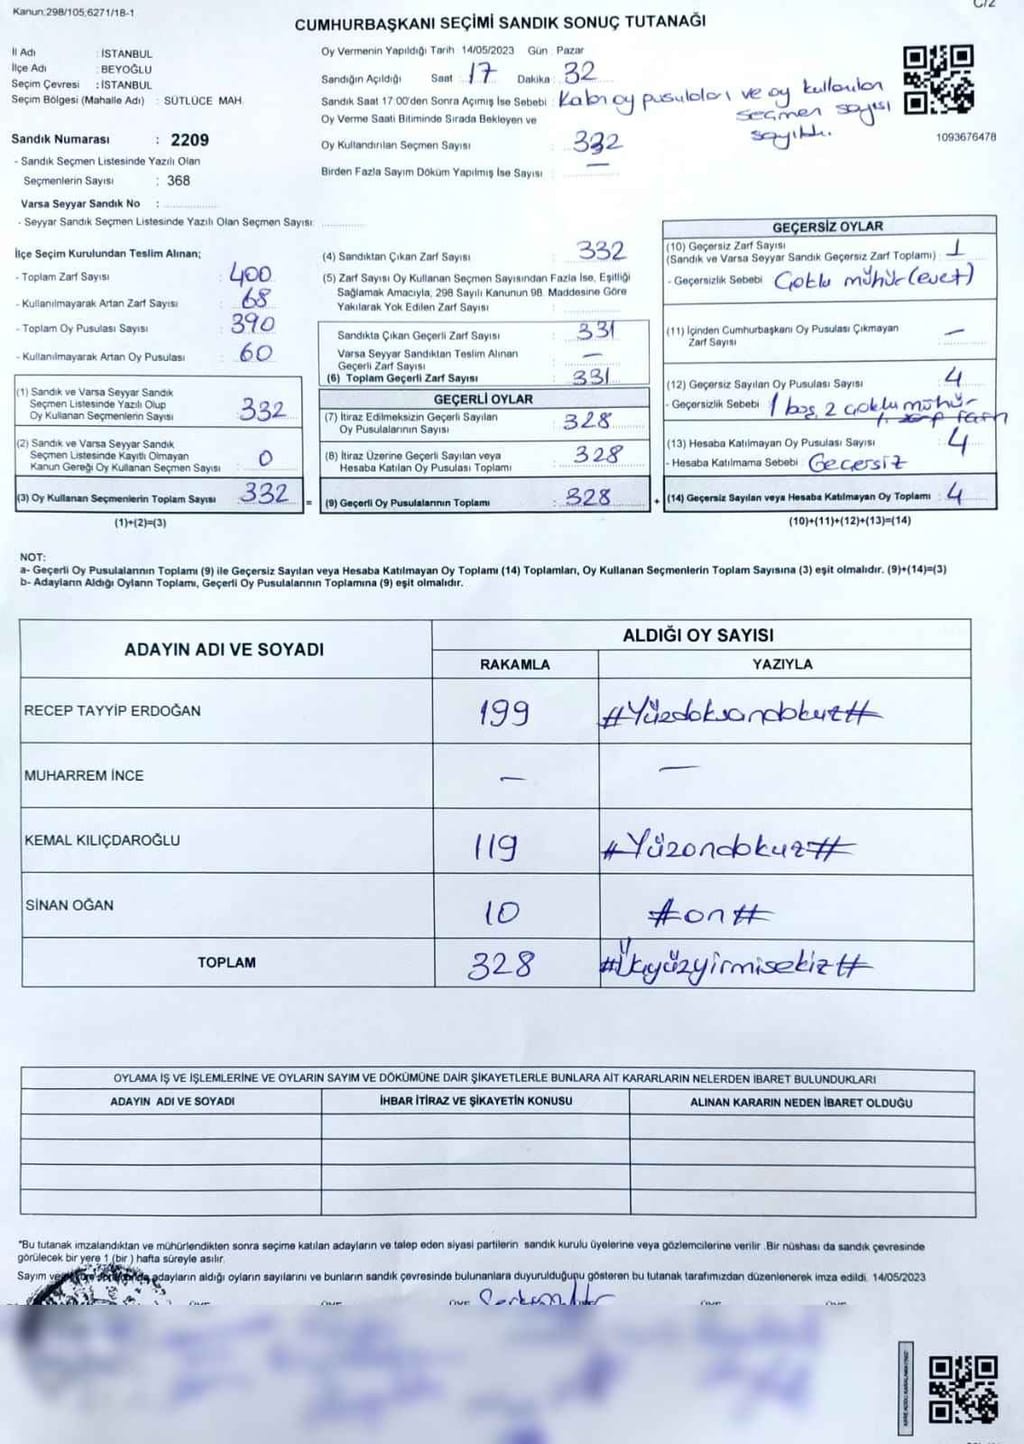 Kanun:298/105,6271/18-1
C/2
CUMHURBAŞKANI SEÇİMİ SANDIK SONUÇ TUTANAĞI
İl Adı : İSTANBUL
İlçe Adı : BEYOĞLU
Seçim Çevresi : İSTANBUL
Seçim Bölgesi (Mahalle Adı) : SÜTLÜCE MAH.
Sandık Numarası : 2209
- Sandık Seçmen Listesinde Yazılı Olan
Seçmenlerin Sayısı : 368
Varsa Seyyar Sandık No :
- Seyyar Sandık Seçmen Listesinde Yazılı Olan Seçmen Sayısı:
Oy Vermenin Yapıldığı Tarih 14/05/2023 Gün Pazar
Sandığın Açıldığı Saat : 17 Dakika : 32
Sandık Saat 17:00'den Sonra Açımış İse Sebebi : Kabı oy pusulaları ve oy kullanılan
seçmen sayısı
sayıldı.
Oy Verme Saati Bitiminde Sırada Bekleyen ve
Oy Kullandırılan Seçmen Sayısı : 332
Birden Fazla Sayım Döküm Yapılmış İse Sayısı : —
1093676478
İlçe Seçim Kurulundan Teslim Alınan;
- Toplam Zarf Sayısı : 400
- Kullanılmayarak Artan Zarf Sayısı : 68
- Toplam Oy Pusulası Sayısı : 390
- Kullanılmayarak Artan Oy Pusulası : 60
(1) Sandık ve Varsa Seyyar Sandık
Seçmen Listesinde Yazılı Olup
Oy Kullanan Seçmenlerin Sayısı : 332
(2) Sandık ve Varsa Seyyar Sandık
Seçmen Listesinde Kayıtlı Olmayan
Kanun Gereği Oy Kullanan Seçmen Sayısı : 0
(3) Oy Kullanan Seçmenlerin Toplam Sayısı : 332 =
(1)+(2)=(3)
(4) Sandıktan Çıkan Zarf Sayısı : 332
(5) Zarf Sayısı Oy Kullanan Seçmen Sayısından Fazla İse, Eşitliği
Sağlamak Amacıyla, 298 Sayılı Kanunun 98. Maddesine Göre
Yakılarak Yok Edilen Zarf Sayısı :
Sandıkta Çıkan Geçerli Zarf Sayısı : 331
Varsa Seyyar Sandıktan Teslim Alınan
Geçerli Zarf Sayısı : —
(6) Toplam Geçerli Zarf Sayısı : 331
GEÇERLİ OYLAR
(7) İtiraz Edilmeksizin Geçerli Sayılan
Oy Pusulalarının Sayısı : 328
(8) İtiraz Üzerine Geçerli Sayılan veya
Hesaba Katılan Oy Pusulası Toplamı : 328
(9) Geçerli Oy Pusulalarının Toplamı : 328 +
GEÇERSİZ OYLAR
(10) Geçersiz Zarf Sayısı
(Sandık ve Varsa Seyyar Sandık Geçersiz Zarf Toplamı) : 1
- Geçersizlik Sebebi : Çoklu mühür (evet)
(11) İçinden Cumhurbaşkanı Oy Pusulası Çıkmayan
Zarf Sayısı : —
(12) Geçersiz Sayılan Oy Pusulası Sayısı : 4
- Geçersizlik Sebebi : 1 boş, 2 çoklu mühür
(13) Hesaba Katılmayan Oy Pusulası Sayısı : 4
- Hesaba Katılmama Sebebi : Geçersiz
(14) Geçersiz Sayılan veya Hesaba Katılmayan Oy Toplamı : 4
(10)+(11)+(12)+(13)=(14)
NOT:
a- Geçerli Oy Pusulalarının Toplamı (9) ile Geçersiz Sayılan veya Hesaba Katılmayan Oy Toplamı (14) Toplamları, Oy Kullanan Seçmenlerin Toplam Sayısına (3) eşit olmalıdır. (9)+(14)=(3)
b- Adayların Aldığı Oyların Toplamı, Geçerli Oy Pusulalarının Toplamına (9) eşit olmalıdır.
ADAYIN ADI VE SOYADI
ALDIĞI OY SAYISI
RAKAMLA YAZIYLA
RECEP TAYYİP ERDOĞAN 199 #Yüzdoksandokuz#
MUHARREM İNCE — —
KEMAL KILIÇDAROĞLU 119 #Yüzondokuz#
SİNAN OĞAN 10 #on#
TOPLAM 328 #Üçyüzyirmisekiz#
OYLAMA İŞ VE İŞLEMLERİNE VE OYLARIN SAYIM VE DÖKÜMÜNE DAİR ŞİKAYETLERLE BUNLARA AİT KARARLARIN NELERDEN İBARET BULUNDUKLARI
ADAYIN ADI VE SOYADI İHBAR İTİRAZ VE ŞİKAYETİN KONUSU ALINAN KARARIN NEDEN İBARET OLDUĞU
*Bu tutanak imzalandıktan ve mühürlendikten sonra seçime katılan adayların ve talep eden siyasi partilerin sandık kurulu üyelerine veya gözlemcilerine verilir .Bir nüshası da sandık çevresinde
görülecek bir yere 1 (bir ) hafta süreyle asılır.
Sayım ve adayların aldığı oyların sayılarını ve bunların sandık çevresinde bulunanlara duyurulduğunu gösteren bu tutanak tarafımızdan düzenlenerek imza edildi. 14/05/2023